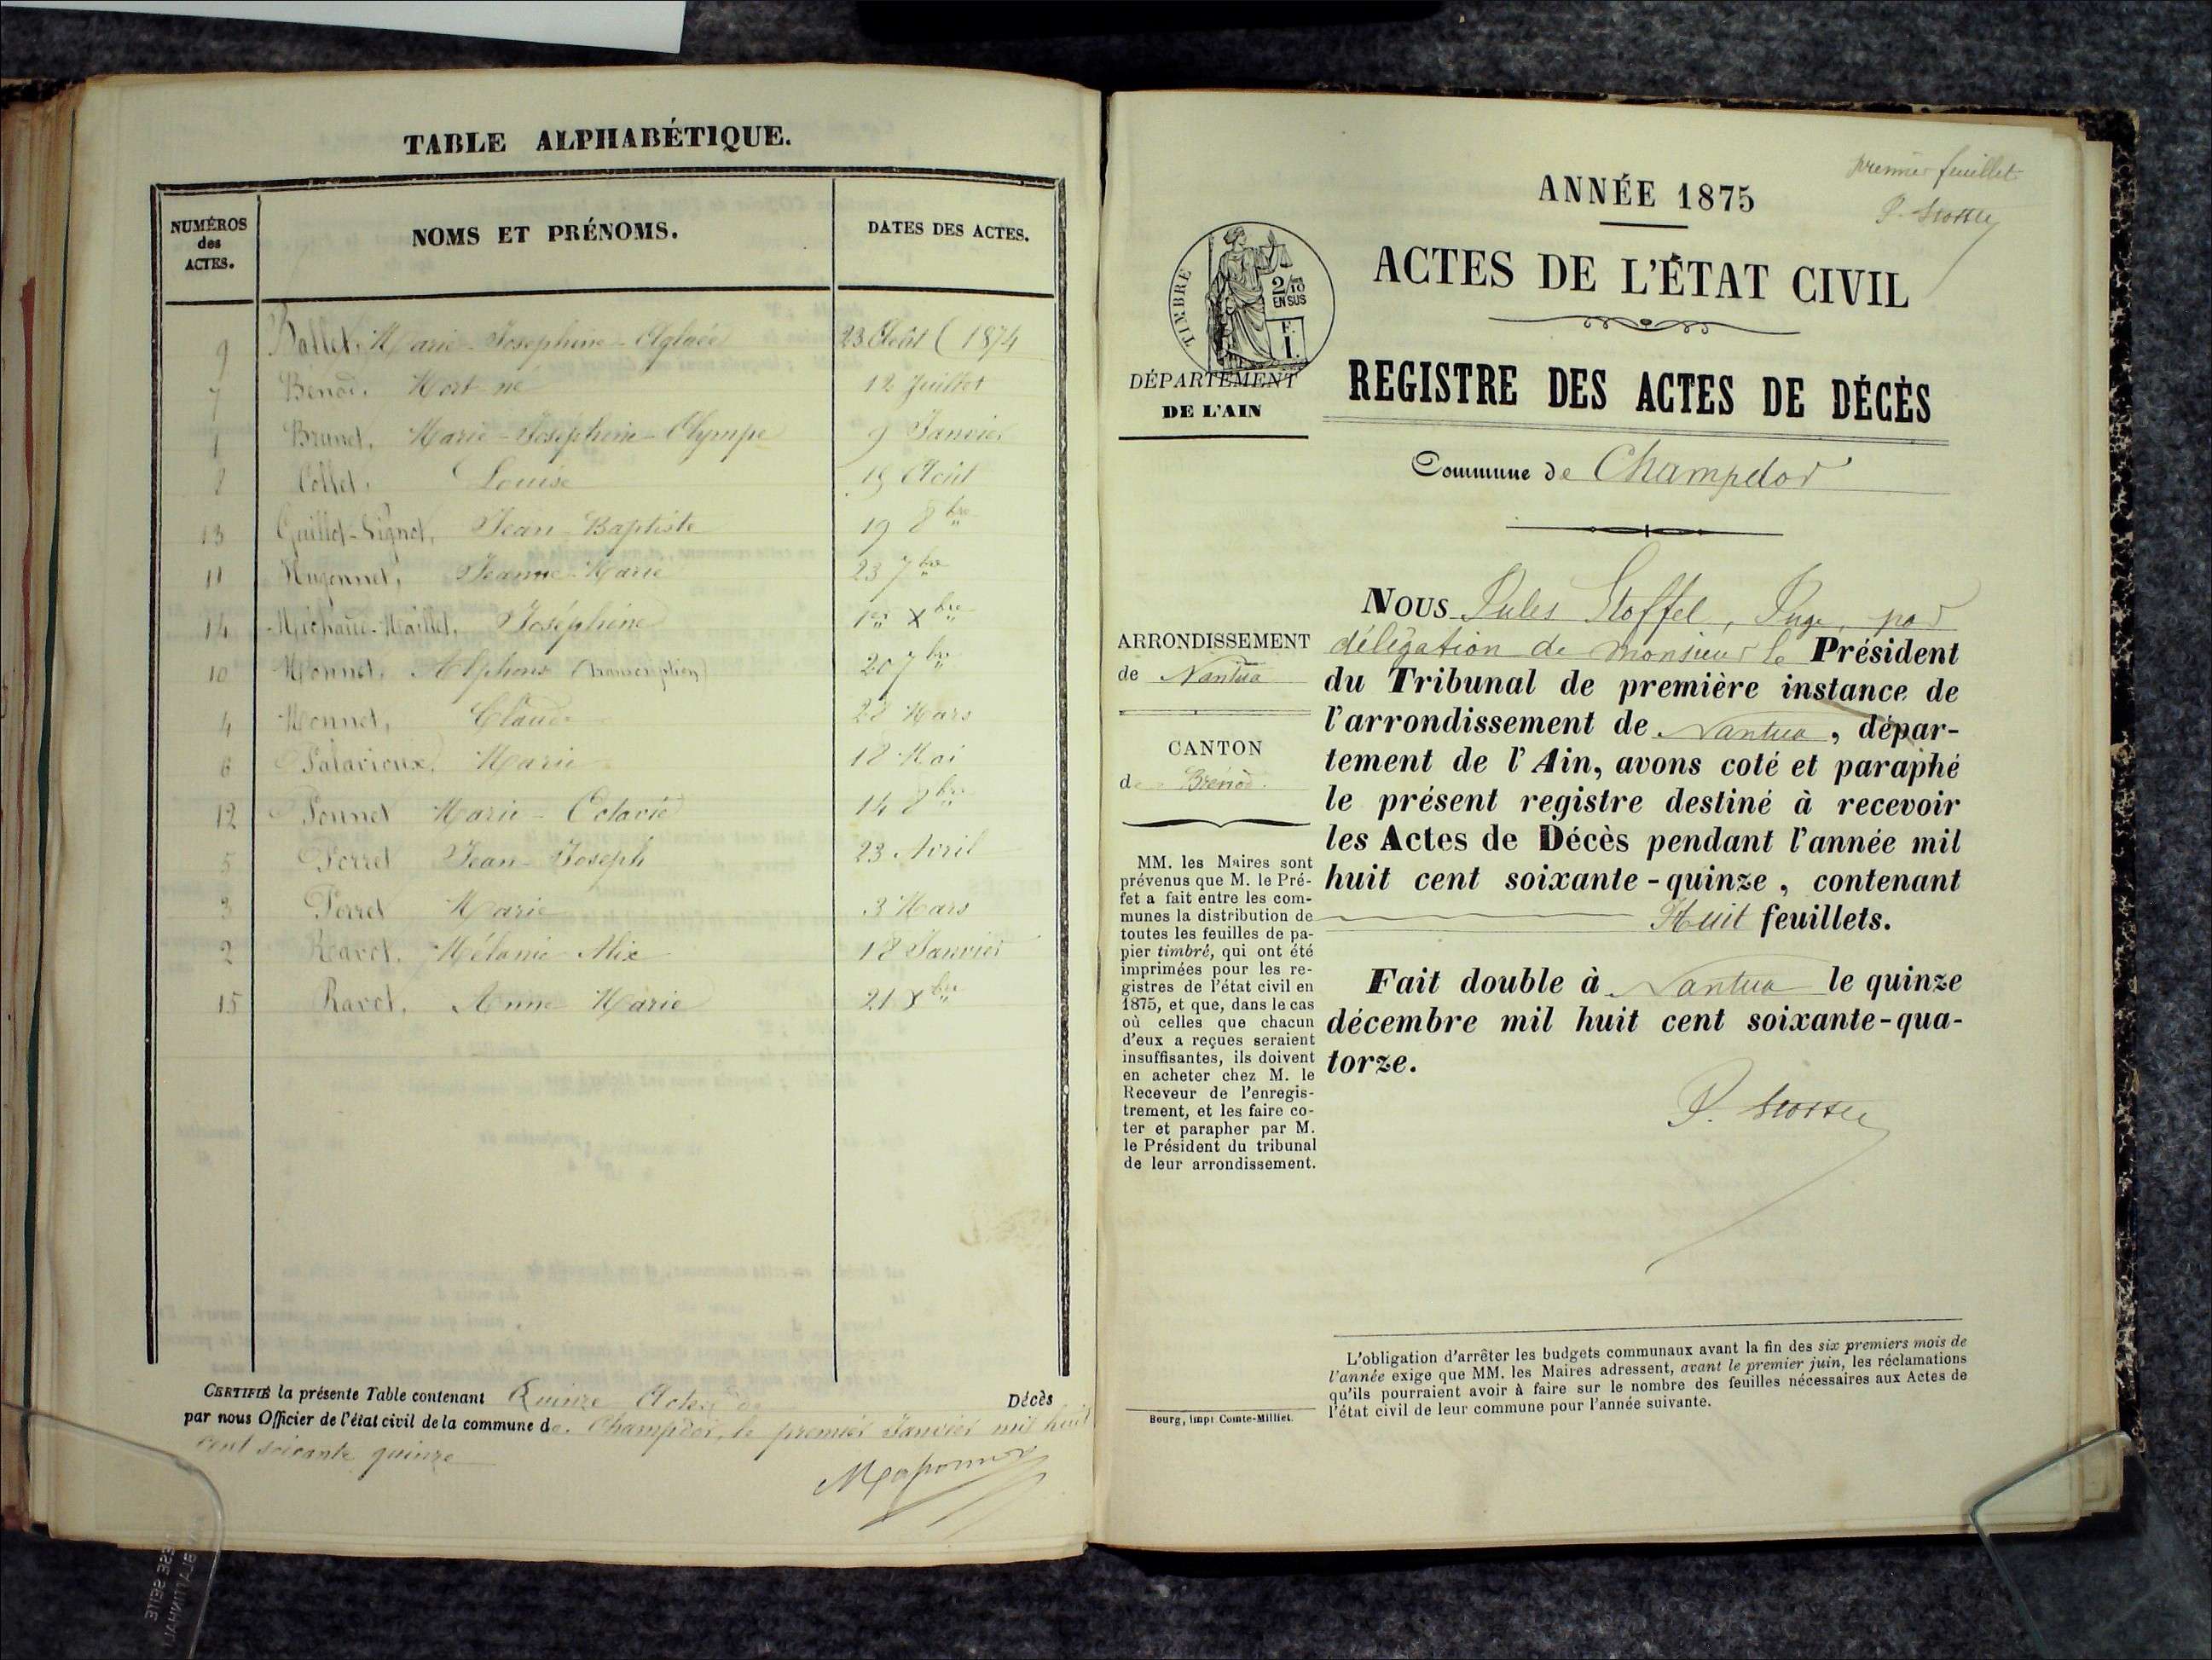 TABLE ALPHABÉTIQUE.
NUMÉROS des ACTES.
NOMS ET PRÉNOMS.
DATES DES ACTES.
9 Ballet, Marie-Josephine-Aglaée 23 Août (1874
7 Bénod, Mort-né 12 Juillet
1 Brunet, Marie-Joséphine-Olympe 9 Janvier
8 Collet, Louise 15 Août
13 Guillot-Vignot, Jean-Baptiste 19 8bre
11 Hugonnet, Jeanne-Marie 23 7bre
14 Michaud-Maillet, Joséphine 1er Xbre
10 Monnet, Alphonse (transcription) 20 7bre
4 Monnet, Claude 28 Mars
6 Marie 18 Mai
12 Ponnet Marie-Octavie 14 8bre
5 Perret Jean-Joseph 23 Avril
3 Perret Marie 3 Mars
2 Ravot, Mélanie Alix 18 Janvier
15 Ravot, Anne Marie 21 Xbre
CERTIFIÉ la présente Table contenant Quinze Actes de Décès
par nous Officier de l'état civil de la commune de Champdor, le premier Janvier mil huit
cent soixante quinze
premier feuillet
ANNÉE 1875
ACTES DE L'ÉTAT CIVIL
TIMBRE
2/10
EN SUS
E.
I.
DÉPARTEMENT
DE L'AIN
REGISTRE DES ACTES DE DÉCÈS
Commune de Champdor
ARRONDISSEMENT
de Nantua
CANTON
de Brénod
MM. les Maires sont
prévenus que M. le Pré-
fet a fait entre les com-
munes la distribution de
toutes les feuilles de pa-
pier timbré, qui ont été
imprimées pour les re-
gistres de l'état civil en
1875, et que, dans le cas
où celles que chacun
d'eux a reçues seraient
insuffisantes, ils doivent
en acheter chez M. le
Receveur de l'enregis-
trement, et les faire co-
ter et parapher par M.
le Président du tribunal
de leur arrondissement.
Bourg, impr Comte-Milliet.
NOUS Jules Stoffel, Juge, par
délégation de Monsieur le Président
du Tribunal de première instance de
l'arrondissement de Nantua, dépar-
tement de l'Ain, avons coté et paraphé
le présent registre destiné à recevoir
les Actes de Décès pendant l'année mil
huit cent soixante-quinze, contenant
Huit feuillets.
Fait double à Nantua le quinze
décembre mil huit cent soixante-qua-
torze.
L'obligation d'arrêter les budgets communaux avant la fin des six premiers mois de
l'année exige que MM. les Maires adressent, avant le premier juin, les réclamations
qu'ils pourraient avoir à faire sur le nombre des feuilles nécessaires aux Actes de
l'état civil de leur commune pour l'année suivante.